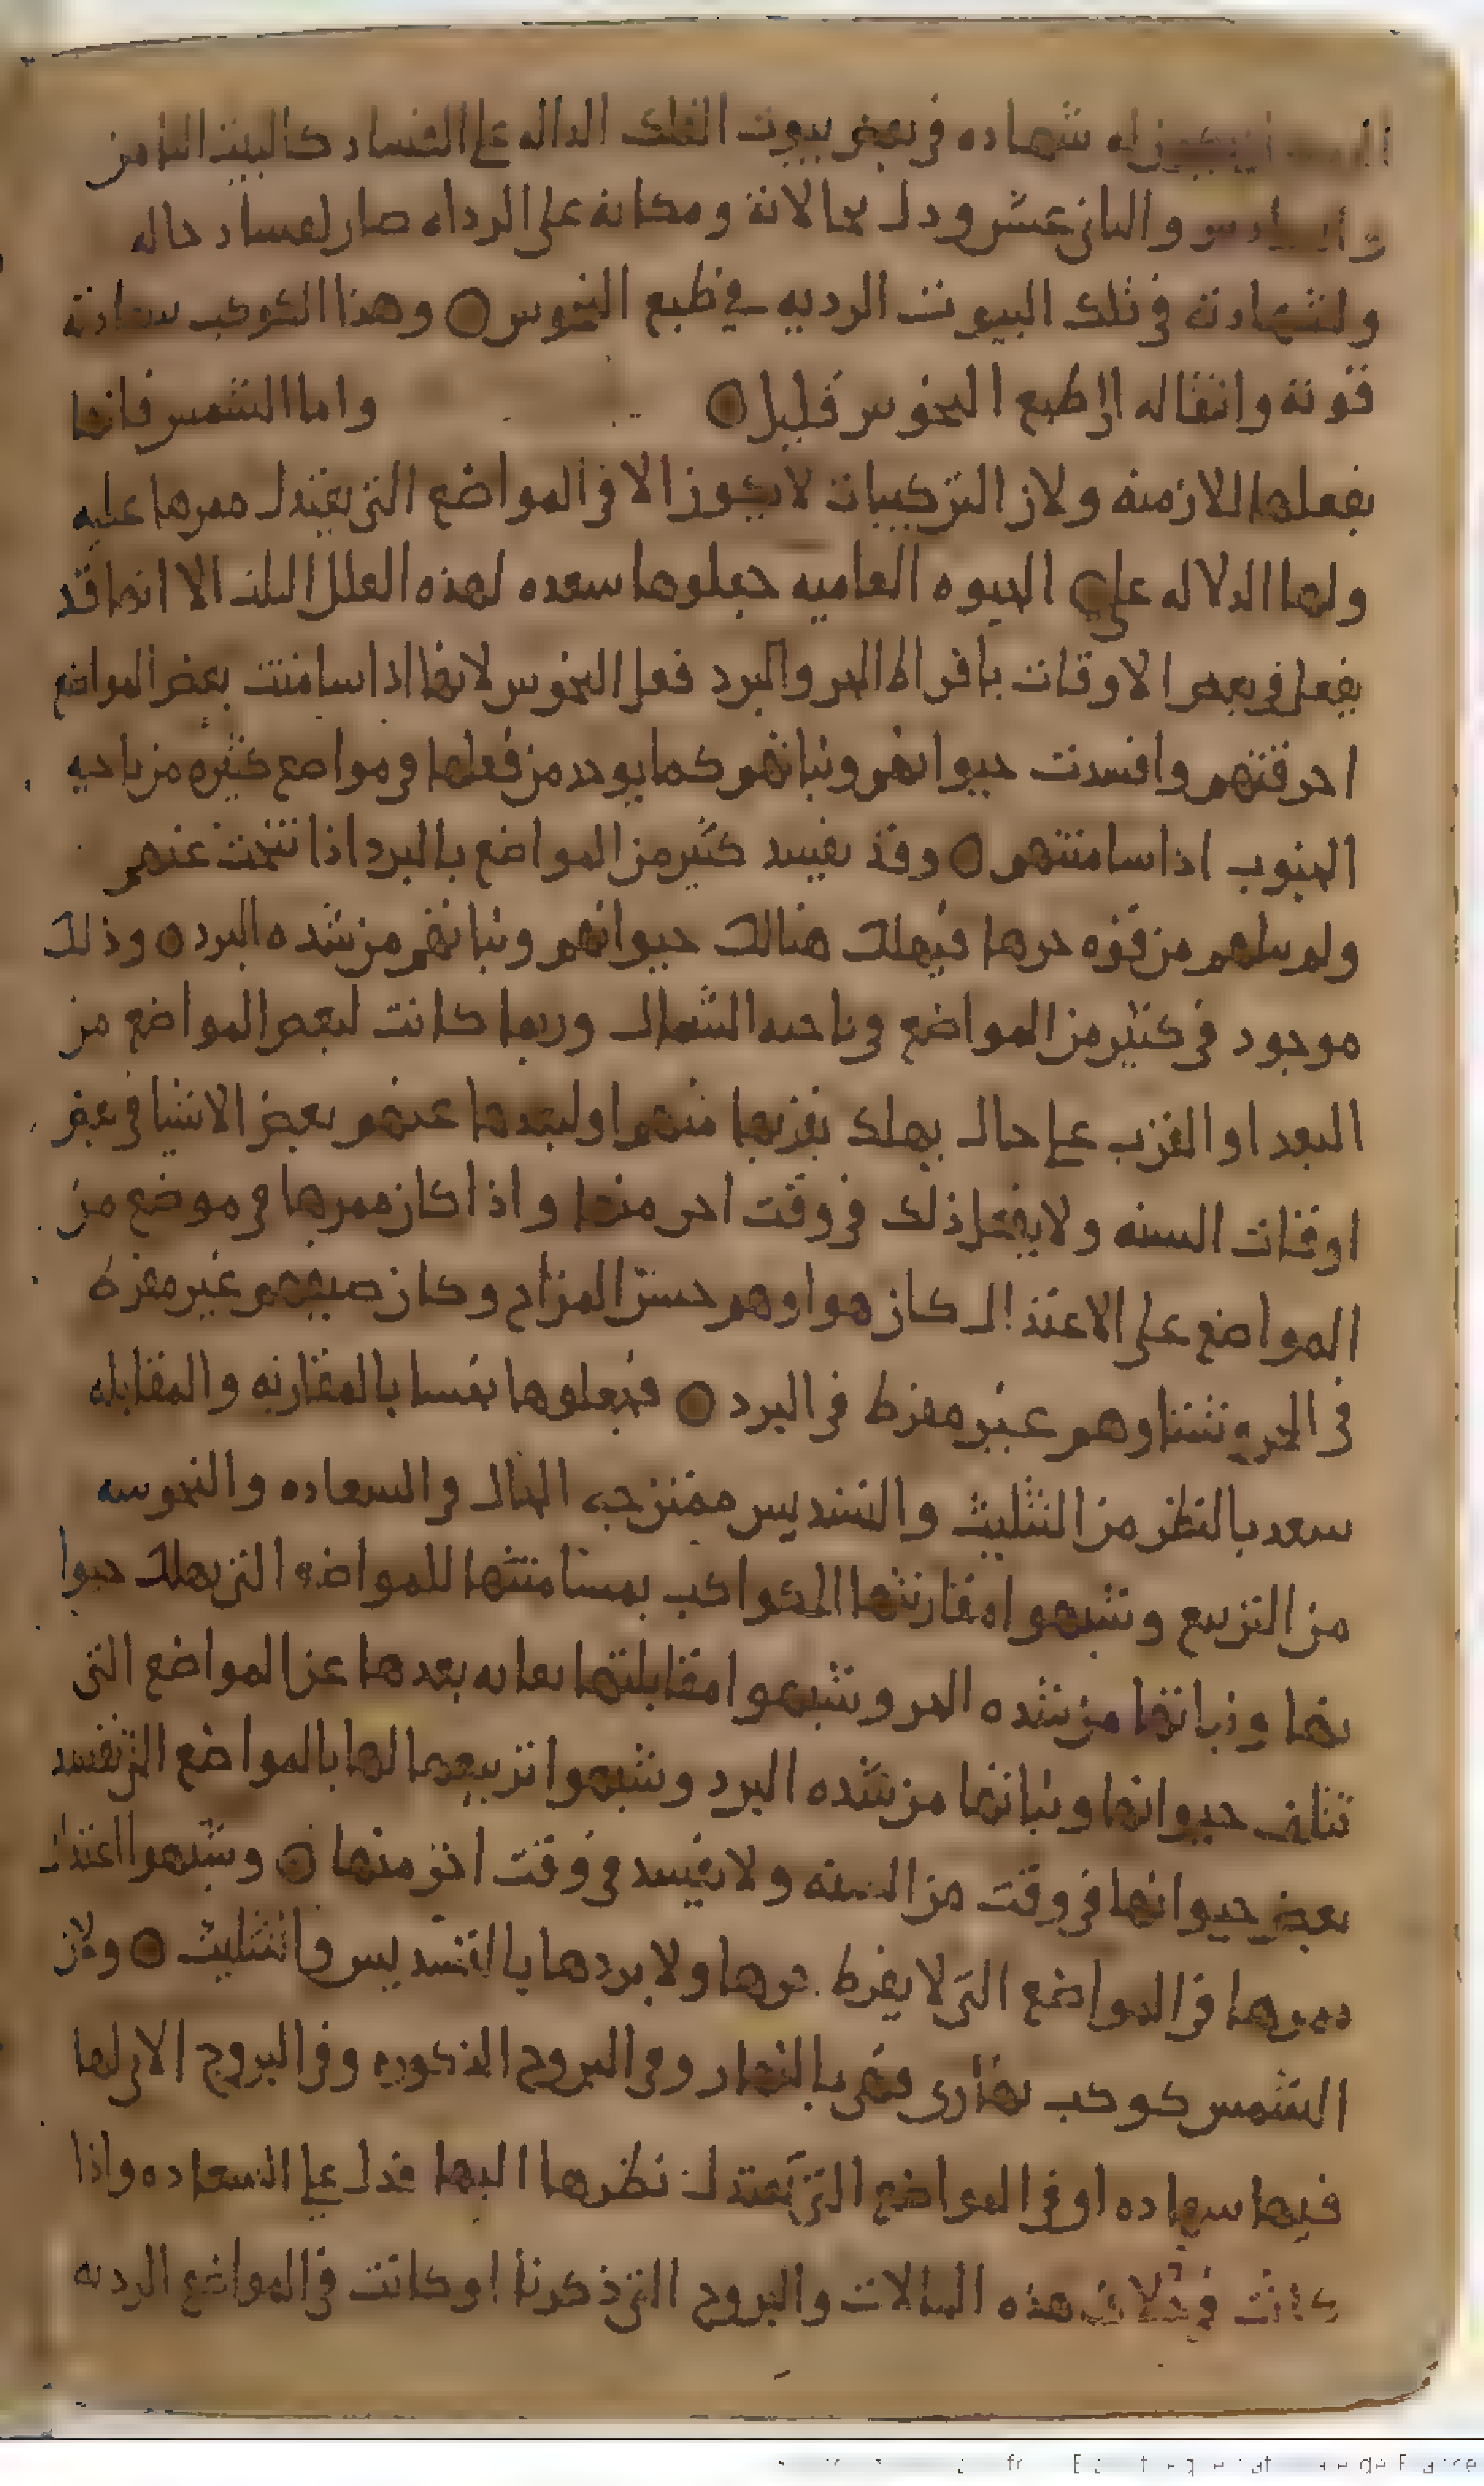 له شهاده في بعض بيوت الفلك الداله على الفساد كالبيت الثامن
والسادس والثاني عشر ودل بحالاته ومكانه على الرداه صار لفساد حاله
ولشهادته في تلك البيوت الرديه في طبع النحوس ○ وهذا الكوكب سعادته
قويه وانتقاله الى طبع النحوس قليل ○ واما الشمس فانها
بفعلها الازمنه ولان التركيبات لا يكون الا في المواضع التي يعتدل ممرها عليه
ولها الدلاله على الحيوه العاميه جعلوها سعده لهذه العلل الثلث الا انها قد
يفعل في بعض الاوقات بافراط الحر والبرد فعل النحوس لانها اذا سامتت بعض المواضع
احرقتهم وافسدت حيوانهم ونباتهم كما يوجد من فعلها في مواضع كثيره من ناحيه
الجنوب اذا سامتتهم ○ وقد يفسد كثير من المواضع بالبرد اذا تنحت عنهم
ولم ينلهم من قوه حرها فيهلك هنالك حيوانهم ونباتهم من شده البرد ○ وذلك
موجود في كثير من المواضع في ناحيه الشمال وربما كانت لبعض المواضع من
البعد او القرب على حال يهلك بقربها منهم او لبعدها عنهم بعض الاشيا في بعض
اوقات السنه ولا يفعل ذلك في وقت اخر منها واذا كان ممرها في موضع من
المواضع على الاعتدال كان هواوهم حسن المزاج وكان صيفهم غير مفرط
في الحر وشتاوهم غير مفرط في البرد ○ فجعلوها نحسا بالمقارنه والمقابله
سعد بالنظر من التثليث والتسديس ممتزجه الحال في السعاده والنحوسه
من التربيع وشبهوا مقارنتها الكواكب بمسامتتها للمواضع التي يهلك حيوا
نها ونباتها من شده الحر وشبهوا مقابلتها بغايه بعدها عن المواضع التي
تتلف حيوانها ونباتها من شده البرد وشبهوا تربيعها لها بالمواضع التي تفسد
بعض حيوانها في وقت من السنه ولا يفسد في وقت اخر منها ○ وشبهوا اعتدال
ممرها في المواضع التي لا يفرط حرها ولا بردها بالتسديس والتثليث ○ ولان
الشمس كوكب نهاري فهي بالنهار وفي البروج الذكوريه وفي البروج الاتي لها
فيها شهاده او في المواضع التي يعتدل نظرها اليها تدل على السعاده واذا
كانت في خلاف هذه الحالات والبروج التي ذكرنا او كانت في المواضع الرديه